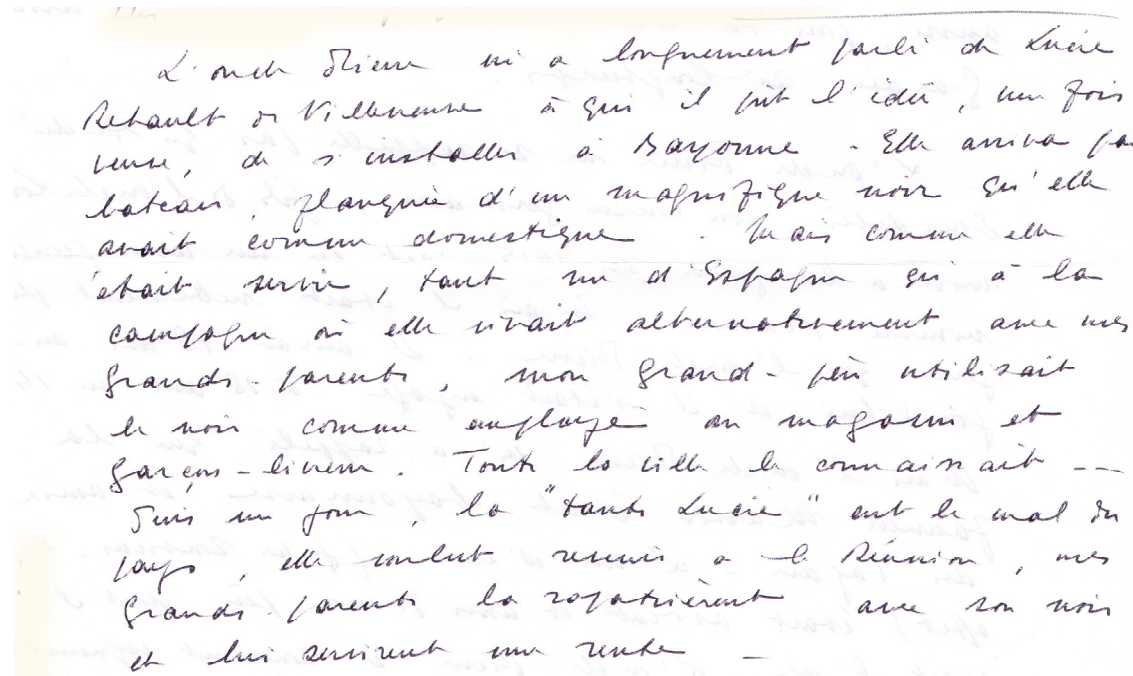 L'oncle Pierre m'a longuement parlé de Lucie
Retault de Villeneuve à qui il prit l'idée, une fois
veuve, de s'installer à Bayonne - Elle arriva par
bateau, flanquée d'un magnifique noir qu'elle
avait comme domestique. Mais comme elle
était servie, tant rue d'Espagne qu'à la
campagne où elle vivait alternativement avec mes
grands-parents, mon grand-père utilisait
le noir comme employé au magasin et
garçon-livreur. Toute la ville le connaissait --
Puis un jour, la "tante Lucie" eut le mal du
pays, elle voulut revenir à la Réunion, mes
grands-parents la rapatrièrent avec son noir
et lui servirent une rente -